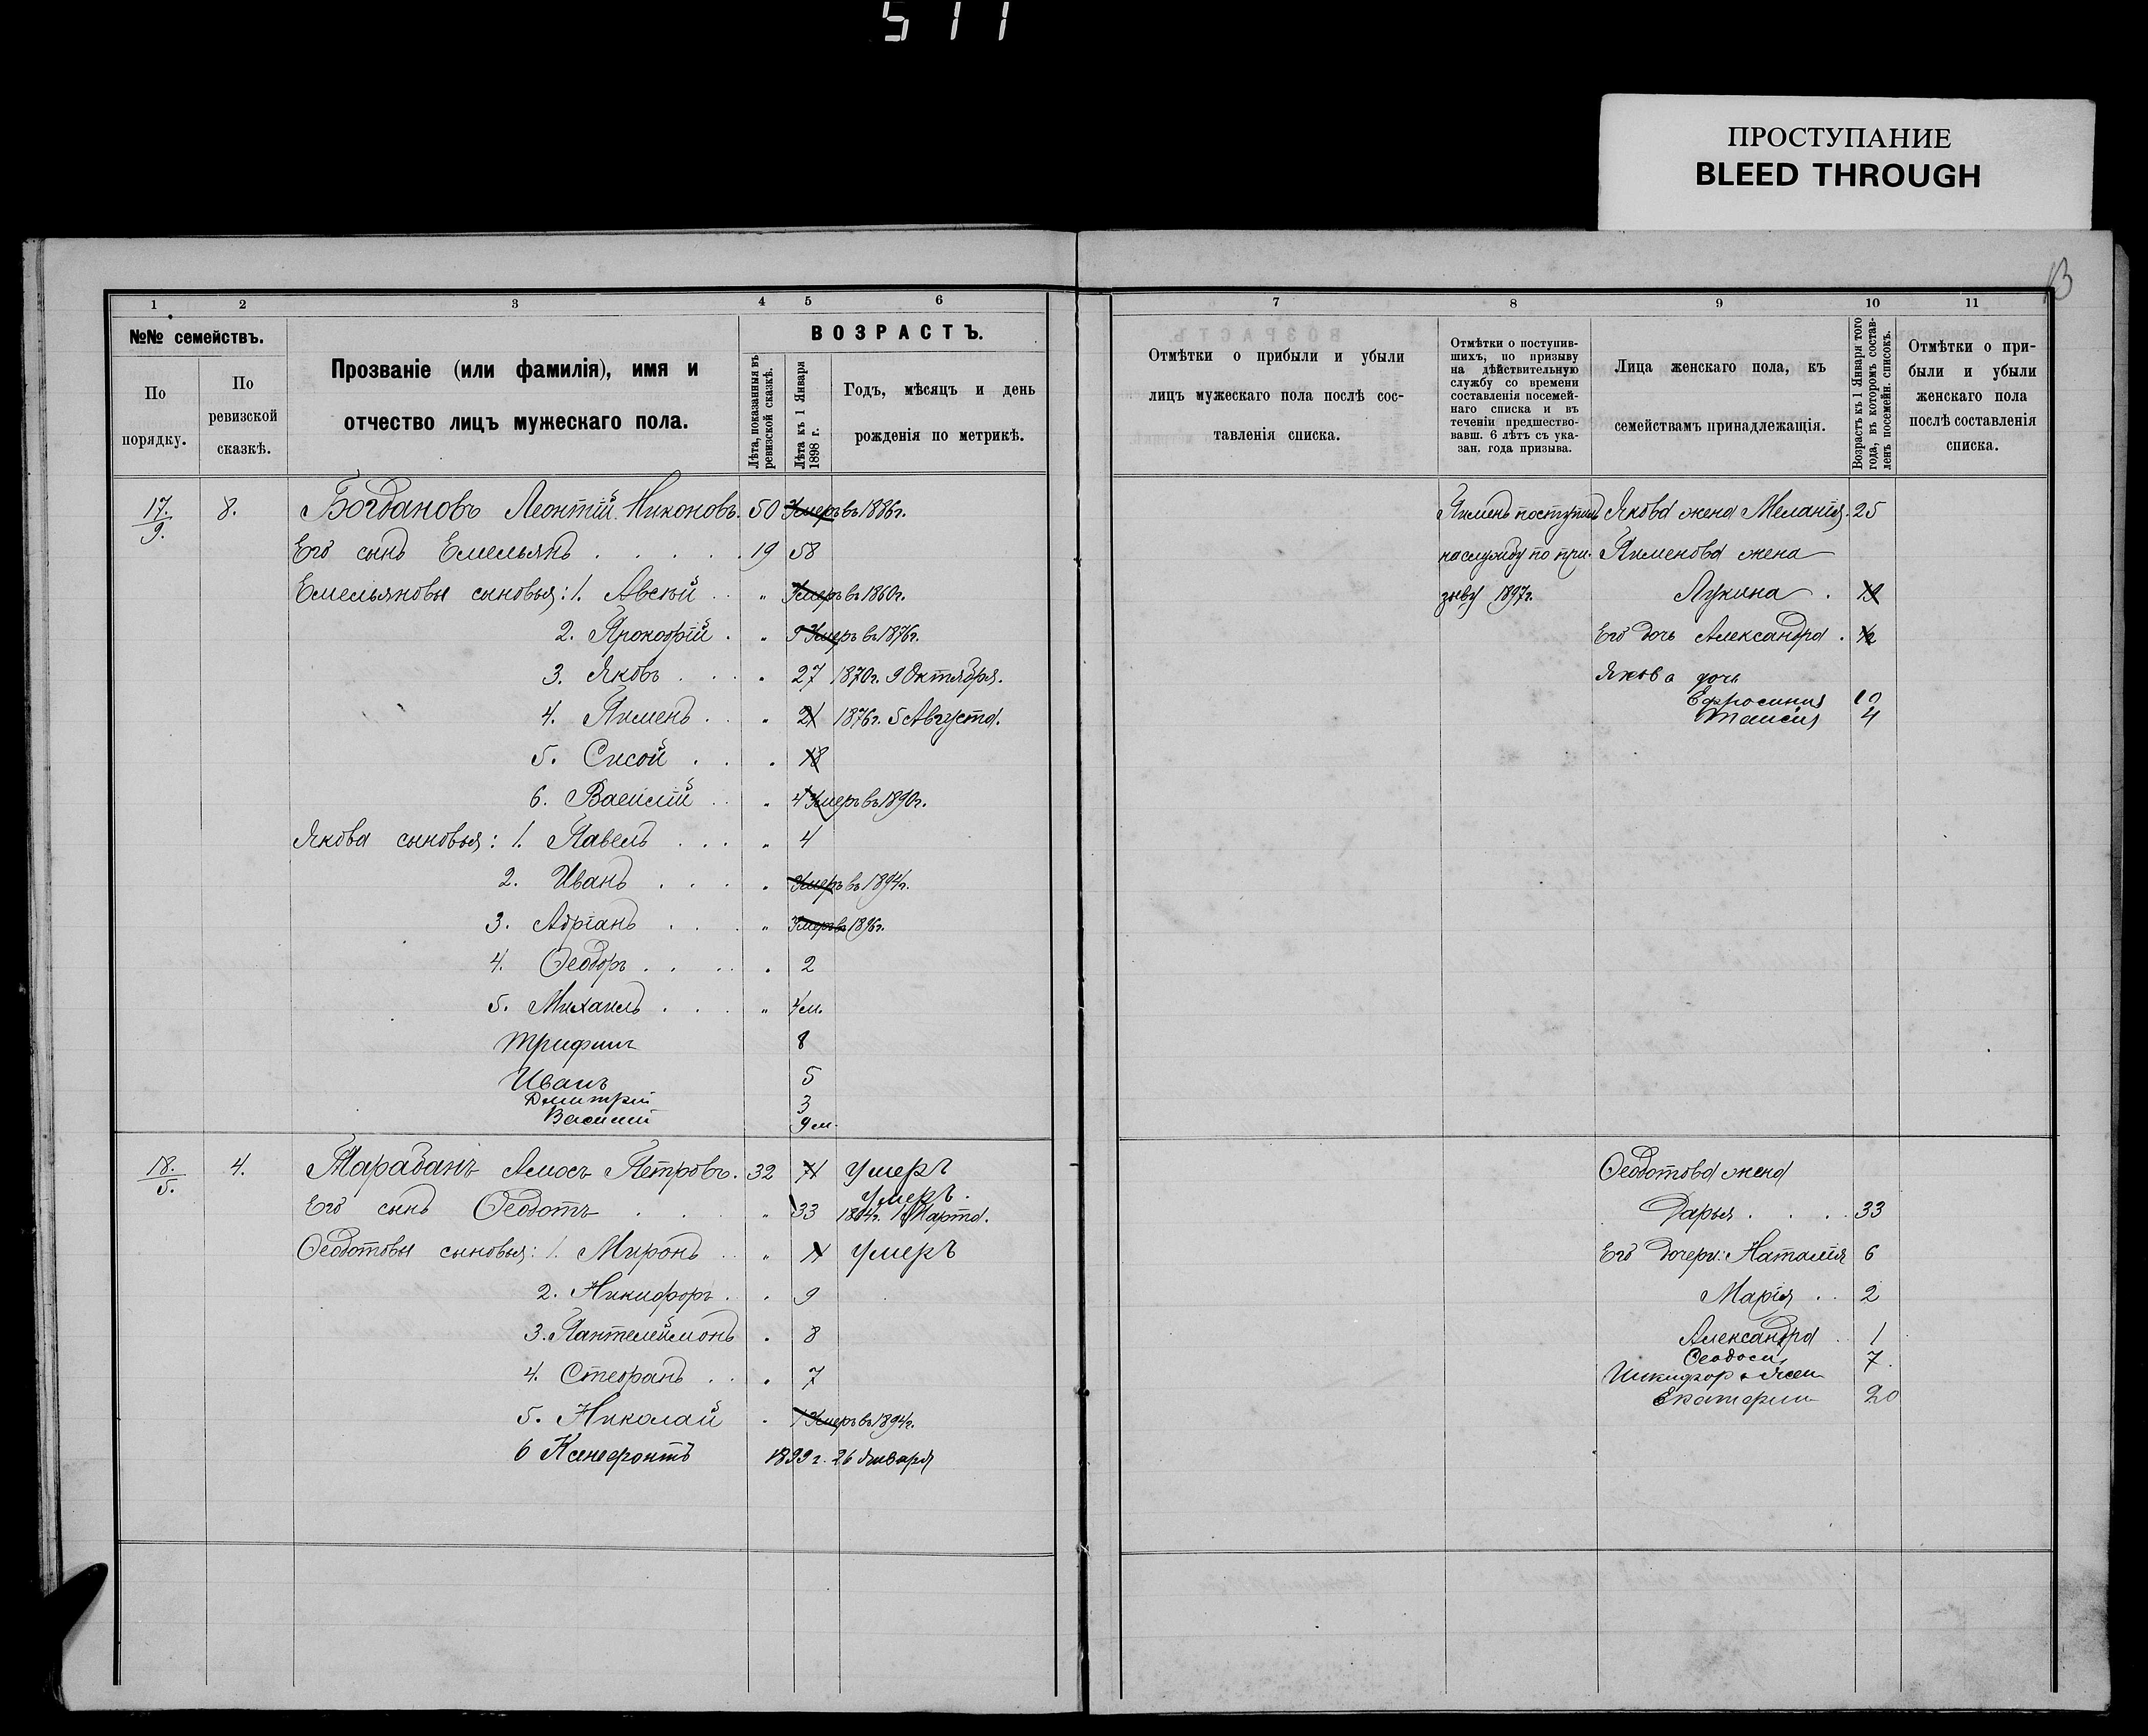 511
ПРОСТУПАНИЕ
BLEED THROUGH
13
1 2 3 4 5 6
№№ семействъ.
По порядку.
По ревизской сказкѣ.
Прозваніе (или фамилія), имя и
отчество лицъ мужескаго пола.
ВОЗРАСТЪ.
Лѣта, показанныя въ ревизской сказкѣ.
Лѣта къ 1 Января 1898 г.
Годъ, мѣсяцъ и день
рожденія по метрикѣ.
17. 8. Богдановъ Леонтій Никоновъ. 50 Умеръ въ 1886г.
9.
Его сынъ Емельянъ . . . . . 19 58
Емельяновы сыновья: 1. Авскій . . " Умеръ въ 1860г.
2. Прокофій . " 9 Умеръ въ 1876г.
3. Яковъ . . . " 27 1870г. 9 Октября.
4. Пименъ . . " 21 1876г. 5 Августа.
5. Сисой . . . 18
6. Василій . . " 4 Умеръ въ 1890г.
Якова сыновья: 1. Павелъ . . . " 4
2. Иванъ . . . " Умеръ въ 1894г.
3. Адріанъ . . . " Умеръ въ 1896г.
4. Ѳеодоръ . . . . " 2
5. Михаилъ . . . " 4м.
Трифин 8
Иванъ 5
Дмитрій 3
Василій 9м.
18. 4. Тарабанъ Амосъ Петровъ. 32 71 умеръ
5.
умеръ.
Его сынъ Ѳеодотъ . . . " 33 1864г. 1 Марта.
Ѳеодотовы сыновья: 1. Миронъ . . " 11 умеръ
2. Никифоръ . . 9
3. Пантелеймонъ . 8
4. Стефанъ . . . 7
5. Николай . 1 Умеръ въ 1894г.
6 Ксенофонтъ 1899г. 26 января
7 8 9 10 11
Отмѣтки о прибыли и убыли
лицъ мужескаго пола послѣ сос-
тавленія списка.
Отмѣтки о поступив-
шихъ, по призыву
на дѣйствительную
службу со времени
составленія посемей-
наго списка и въ
теченіи предшество-
вавш. 6 лѣтъ съ ука-
зан. года призыва.
Лица женскаго пола, къ
семействамъ принадлежащія.
Возрастъ къ 1 Января того
года, въ которомъ состав-
ленъ посемейн. списокъ.
Отмѣтки о при-
были и убыли
женскаго пола
послѣ составленія
списка.
Пименъ поступилъ Якова жена Меланія. 25
на службу по при- Пименова жена
зыву 1897г. Лукина . 19
Его дочь Александра . 1/2
Якова дочь
Ефросинія 10
Таисия 4
Ѳеодотова жена
Дарья . . . . 33
Его дочери: Наталія 6
Марія . . 2
Александра . 1
Ѳеодоси 7.
Никифор
Екатерин 20